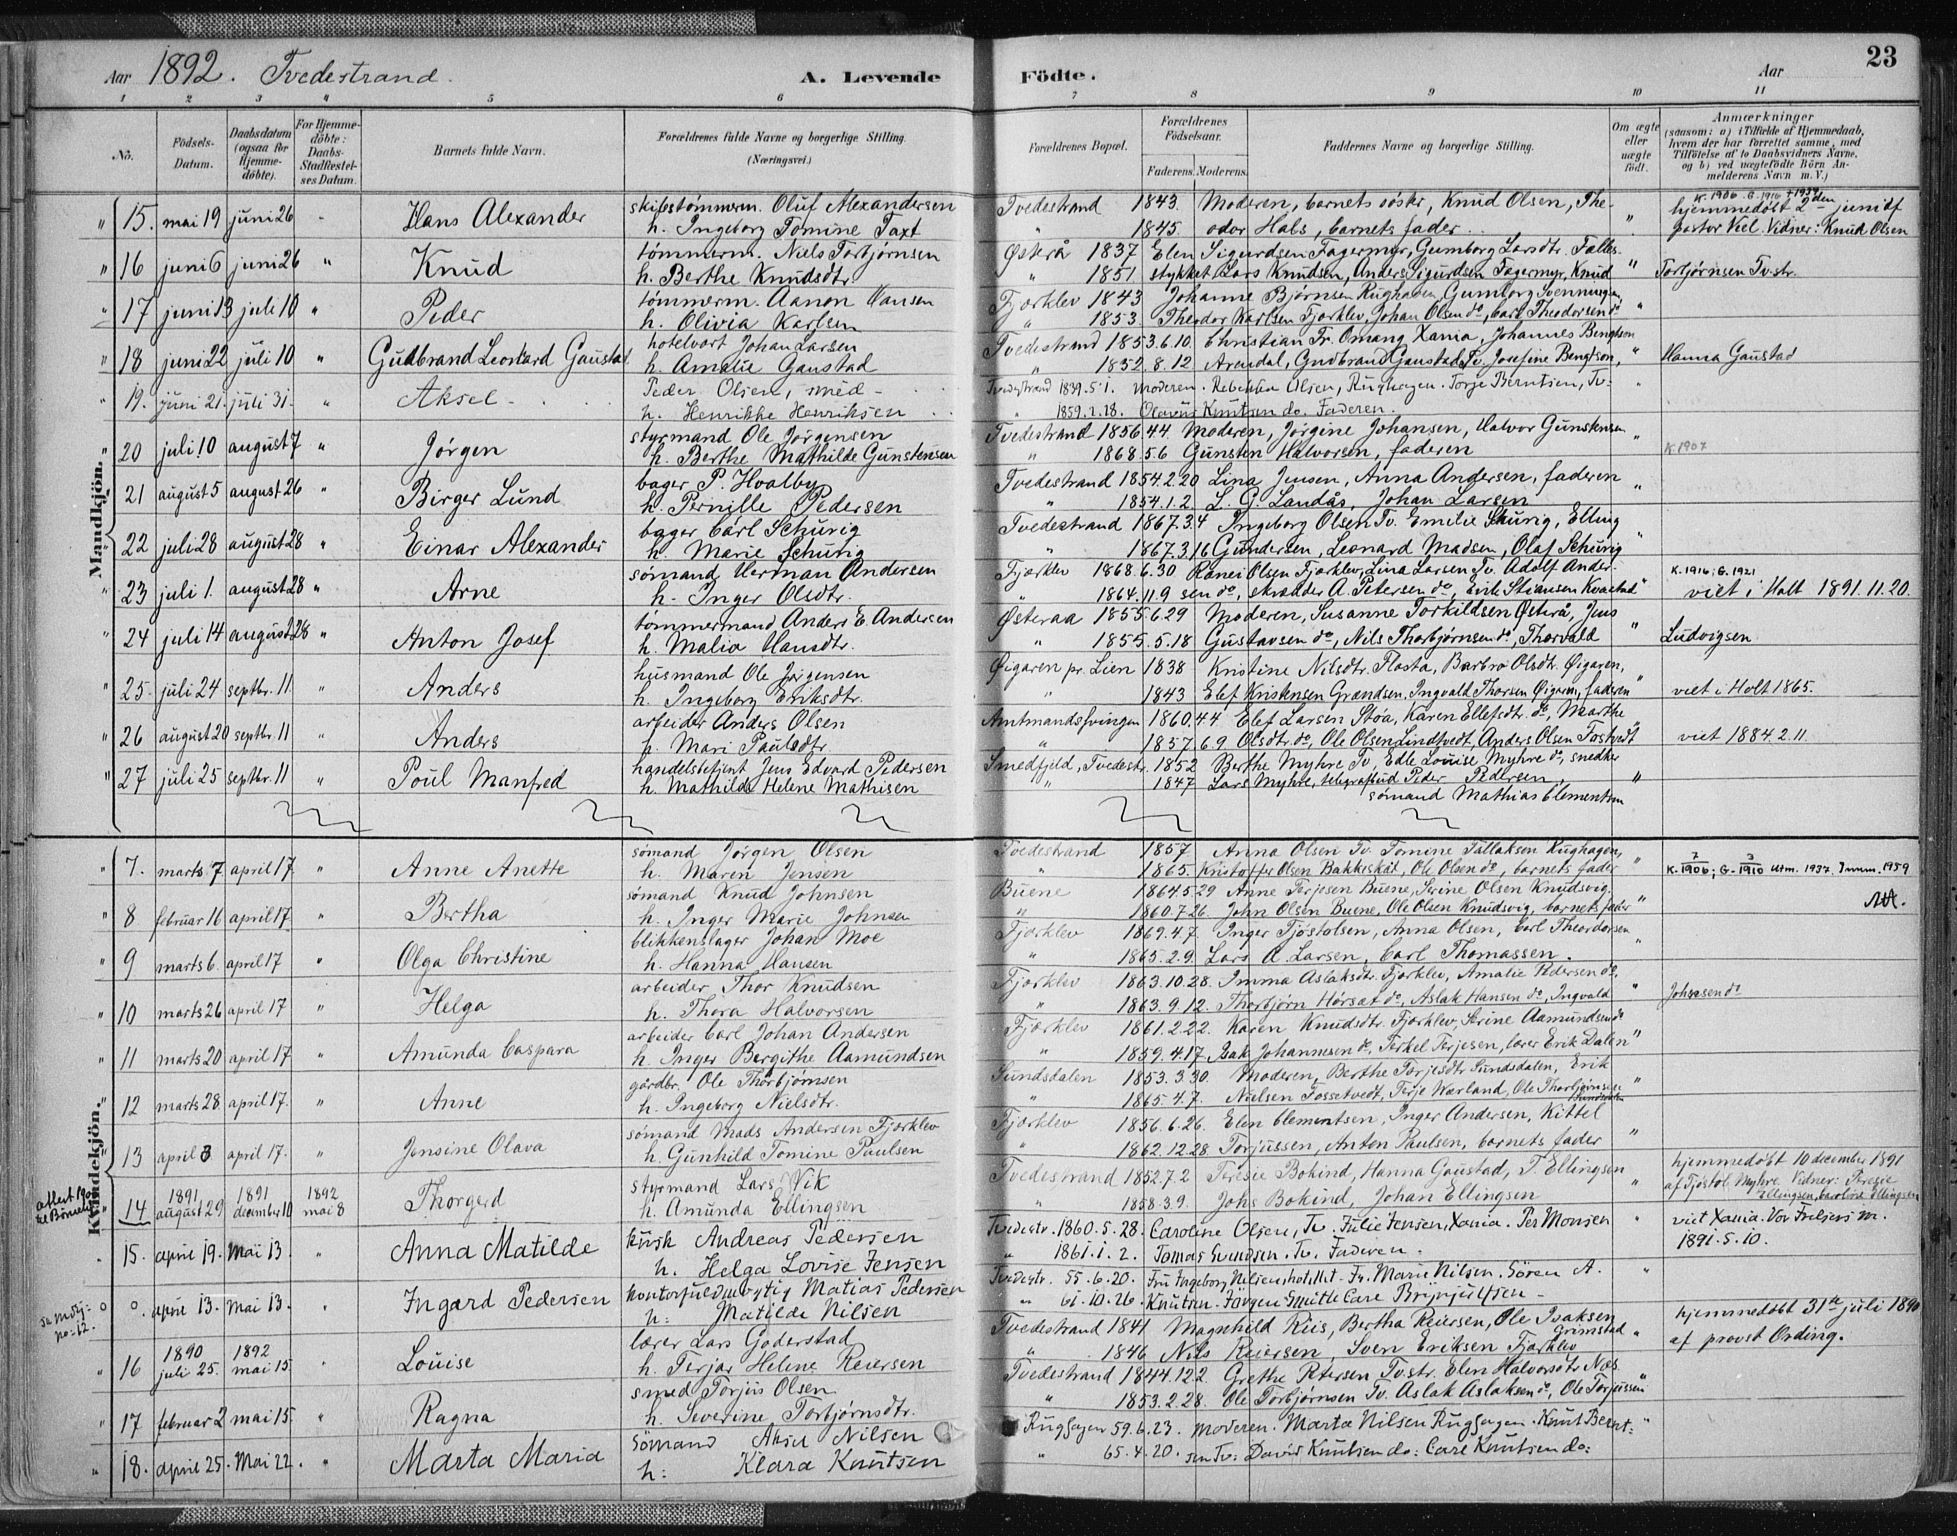 Aar 1892. Tvedestrand. A. Levende Födte. Aar 23
1 2 3 4 5 6 7 8 9 10 11
No. Födsels-Datum. Daabsdatum (ogsaa for Hjemme-döbte). For Hjemme-döbte: Daabs-Stadfæstel-ses Datum. Barnets fulde Navn. Forældrenes fulde Navne og borgerlige Stilling. (Næringsvei.) Forældrenes Bopæl. Forældrenes Födselsaar. Faderens. Moderens. Faddernes Navne og borgerlige Stilling. Om ægte eller uægte födt. Anmærkninger (saasom: a) i Tilfælde af Hjemmedaab, hvem der har forrettet samme, med Tilföielse af to Daabsvidners Navne, og b) ved uægtefödte Börn An-melderens Navn m. V.)
Mandkjön.
K. 1906 G. 1916 +1959
" 15. mai 19 juni 26 - Hans Alexander skibstømmerm. Oluf Alexandersen Tvedestrand 1843. Moderen, barnets søster, Knud Olsen, The- hjemmedøbt 2den juni af
h. Ingeborg Tomine Taxt " 1845. odor Hals, barnets fader " pastor Kiel. Vidner: Knud Olsen
" 16 juni 6 juni 26 " Knud tömmerm. Niels Torbjørnsen Østerå 1837 Elen Sigurdsen Fagermyr, Gumborg Larsdtr. Fælles-
h. Berthe Knudsdtr. " 1851 stykket Lars Knudsen, Anders Sigurdsen Fagermyr, Knud " Torbjørnsen Tv.str.
" 17 juni 13 juli 10 " Peder tömmerm. Aanon Hansen Fjærklev 1843 Johanne Bjørnsen Rughaven, Gumborg Svenningsen,
h. Olivia Karlsen " 1853 Theodor Karlsen Fjærklev, Johan Olsen do, Carl Theodorsen do "
" 18 juni 22 juli 10 " Gudbrand Leonhard Gaustad hotelvært Johan Larsen Tvedestrand 1853.6.10. Christian Fr. Omang Xania, Johannes Bengtson
h. Amalie Gaustad " 1852.8.12 Arendal, Gudbrand Gaustad Tv. Josefine Bengtson, " Hanna Gaustad
" 19. juni 21. juli 31. " Aksel Peder Olsen, smed Tvedestrand 1859.5.1. Moderen. Rebekka Olsen, Rughagen. Torje Berntsen, Tv: "
h. Henrikke Henriksen " 1859.2.18. Olavus Knutsen do. Faderen.
" 20 juli 10 august 7 " Jörgen styrmand Ole Jörgensen Tvedestrand 1856.4.4. Moderen, Jörgine Johansen, Halvor Gunstensen
h. Berthe Mathilde Gunstensen " 1868.5.6 Gunsten Halvorsen, faderen " K. 1907
" 21 august 5 august 26 " Birger Lund bager P. Hvalby Tvedestrand 1854.2.20 Lina Jensen, Anna Andersen, faderen
h. Pernille Pedersen " 1854.1.2 L. G. Landås, Johan Larsen "
" 22 juli 28 august 28 " Einar Alexander bager Carl Schurig Tvedestrand 1867.3.4 Ingeborg Olsen Tv. Emilie Schurig, Elling
h. Marie Schurig " 1867.3.16 Gundersen, Leonard Madsen, Olaf Schurig
" 23 juli 1. august 28 " Arne sömand Herman Andersen Fjærklev 1868.6.30 Ranei Olsen Fjærklev, Lina Larsen Tv. Adolf Ander- K. 1916; G. 1921
h. Inger Olsdtr. " 1864.11.9 sen do, skrædder A. Petersen do, Erik Stiansen Kvastad " viet i Holt 1891.11.20.
" 24 juli 14 august 28 " Anton Josef tömmermand Anders E. Andersen Østeraa 1855.6.29 Moderen, Susanne Torkildsen Østerå, Jens
h. Malia Hansdtr. " 1855.5.18 Gustavsen do, Nils Thorbjørnsen do, Thorvald " Ludvigsen
" 25. juli 24 septbr. 11 " Anders husmand Ole Jørgensen Øigaren pr. Lien 1838 Kristine Nilsdtr. Flosta, Barbro Olsdtr. Øigaren,
h. Ingeborg Eriksdtr. " 1843 Elef Kristensen Grændsen, Ingvald Thorsen Øigaren, faderen " viet i Holt 1865.
" 26 august 20 septbr. 11 " Anders arbeider Anders Olsen Amtmandsvingen 1860.4.4 Elef Larsen Støa, Karen Ellefsdtr. do, Marthe
h. Mari Paulsdtr. " 1857.6.9 Olsdtr. do, Ole Olsen Lindtvedt, Anders Olsen Fostvedt " viet 1884.2.11.
" 27 juli 25 septbr. 11 " Poul Manfred handelsbetjent Jens Edvard Pedersen Smedfjeld, Tvedestr. 1852 Berthe Myhre Tv, Edle Louise Myhre do, snedker
h. Mathilde Helene Mathisen " 1847 Lars Myhre, telegrafbud Peder Pedersen, "
sömand Mathias Clementsen
Kvindekjön.
" 7. marts 7 april 17 " Anne Anette sömand Jørgen Olsen Tvedestrand 1857 Anna Olsen Tv. Tomine Tallaksen Rughagen,
h. Maren Jensen " 1865. Kristoffer Olsen Bakkeskåt, Ole Olsen do, barnets fader " K. 7/1906; G. 3/1910 Utm. 1937. Innm. 1959
" 8 februar 16 april 17 " Bertha sömand Knud Johnsen Buene 1864.5.29 Anne Terjesen Buene, Serine Olsen Knudsvig,
h. Inger Marie Johnsen " 1860.7.26. John Olsen Buene, Ole Olsen Knudsvig, barnets fader "
" 9 marts 6. april 17 " Olga Christine blikkenslager Johan Moe Fjærklev 1869.4.7. Inger Fjöstolsen, Anna Olsen, Carl Theordorsen
h. Hanna Hansen " 1865.2.9. Lars A. Larsen, Carl Thomassen. "
" 10 marts 26 april 17 " Helga arbeider Thor Knudsen Fjærklev 1863.10.28. Imma Aslaksdtr. Fjærklev, Amalie Pedersen do,
h. Thora Halvorsen " 1863.9.12. Thorbjörn Hørsæt do, Aslak Hansen do, Ingvald " Johnsen do
" 11 marts 20 april 17. " Amunda Caspara arbeider Carl Johan Andersen Fjærklev 1861.2.22. Karen Knudsdtr. Fjærklev, Serine Aamundsen do
h. Inger Bergithe Aamundsen " 1859.4.17. Isak Johannesen do, Terkel Terjesen, lærer Erik Dalen "
" 12 marts 28. april 17. " Anne gårdbr. Ole Thorbjørnsen Sundsdalen 1853.3.30. Moderen, Berthe Terjesdtr Sundsdalen, Erik
h. Ingeborg Nielsdtr. " 1865.4.7. Nielsen Fossetvedt, Terje Værland, Ole Thorbjörnsen Sundsdalen "
13 april 3 april 17. " Jensine Olava sömand Mads Andersen Fjærklev Fjærklev 1856.6.26. Elen Clementsen, Inger Andersen, Kittel
h. Gunhild Tomine Paulsen " 1862.12.28 Torjussen, Anton Paulsen, barnets fader "
14 1891 august 29 1891 december 10 1892 mai 8 Thorgerd styrmand Lars Vik Tvedestrand 1852.7.2 Teresie Bohind, Hanna Gaustad, T. Ellingsen " hjemmedøbt 10 december 1891
h. Amunda Ellingsen " 1858.3.9. Johs Bokind, Johan Ellingsen af Fjöstol Myhre Vidner: Teresie Ellingsen, Caroline Ellingsen
15. april 19. Mai 13. " Anna Matilde kusk Andreas Pedersen Tvedestr. 1860.5.28. Caroline Olsen, Tv. Julie Jensen, Xania. Per Monsen " viet Xania. Vor Frelsers m.
h. Helga Lovise Jensen " 1861.1.2. Tomas Svendsen. Tv. Faderen. 1891.5.10.
april 13. Mai 13. " Ingard Pedersen kontorfuldmægtig Matias Pedersen Tvedestr. 55.6.20. Fru Ingeborg Nilsen, hotellet. Fr. Marie Nilsen. Sören A. "
h: Matilde Nilsen " 61.10.26. Knutsen. Jörgen Smith Carl Brynjulfsen
" 16 1890 juli 25. 1892 mai 15. " Louise lærer Lars Goderstad Tvedestrand 1841 Magnhild Riis, Bertha Reiersen, Ole Isaksen Grimstad " hjemmedøbt 31te juli 1890
h. Terjar Helene Reiersen " 1846 Nils Reiersen, Sven Eriksen Fjærklev af provst Ording.
" 17 februar 2 mai 15. " Ragna smed Torjus Olsen Tvedestrand 1844.12.2 Grethe Petersen Tv.str. Elen Halvorsdtr Næs
h. Severine Torbjørnsdtr. " 1853.2.28. Ole Torbjørnsen Tv. Aslak Aslaksen do, Ole Torjussen "
" 18. april 25. Mai 22. " Marta Maria Sömand Aksel Nilsen Rughagen 59.6.23. Moderen. Marta Nilsen Rughagen. Knut Bernt- "
h: Klara Knutsen " 65.4.20. sen Tv: David Knutsen do: Carl Knutsen do: